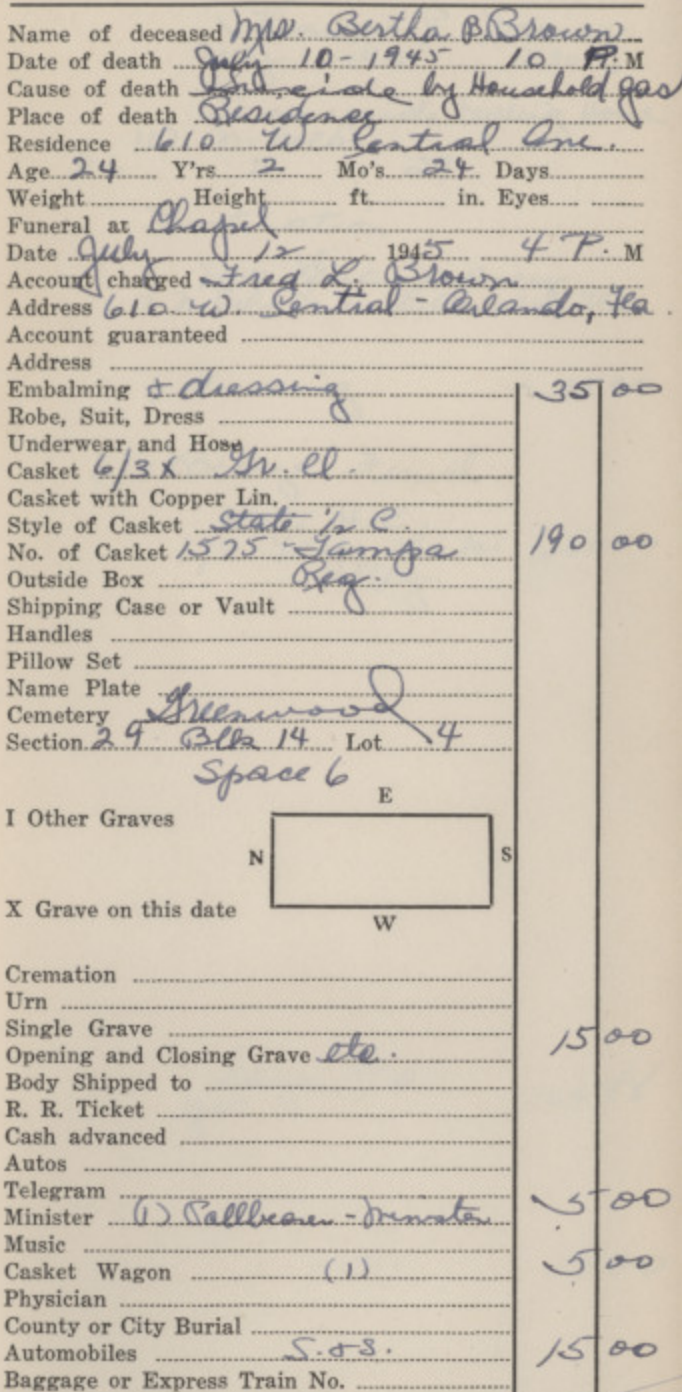 Name of deceased Mrs. Bertha B Brown
Date of death July 10 - 1945 10 P. M
Cause of death Suicide by Household gas
Place of death Residence
Residence 610 W. Central Ave.
Age 24 Y'rs. 2 Mo's 24 Days
Weight Height ft. in. Eyes
Funeral at Chapel
Date July 12 1945 4 P. M
Account charged Fred L. Brown
Address 610 W. Central - Orlando, Fla.
Account guaranteed
Address
Embalming & dressing 35 00
Robe, Suit, Dress
Underwear and Hose
Casket 6/3 X Gr. Cl.
Casket with Copper Lin.
Style of Casket State 1/2 C.
No. of Casket 1575 - Tampa 190 00
Outside Box Reg.
Shipping Case or Vault
Handles
Pillow Set
Name Plate
Cemetery Greenwood
Section 29 Blk 14 Lot 4
Space 6
E
I Other Graves
N S
X Grave on this date
W
Cremation
Urn
Single Grave
Opening and Closing Grave etc. 15 00
Body Shipped to
R. R. Ticket
Cash advanced
Autos
Telegram
Minister (1) Pallbearer - Minister 5 00
Music
Casket Wagon (1) 5 00
Physician
County or City Burial
Automobiles S. & S. 15 00
Baggage or Express Train No.